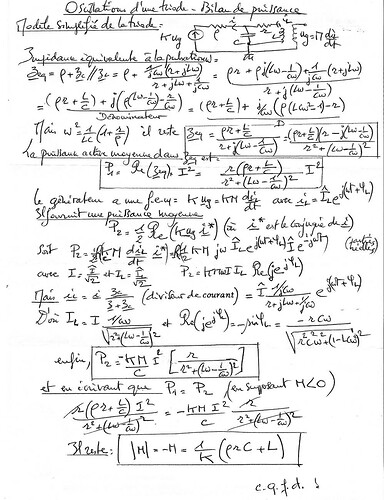 Oscillations d'une triode - Bilan de puissance
Modèle simplifié de la triode:
K ug
ρ i
C
r iL
L
ug = M diL/dt
Impédance équivalente à la pulsation ω
Zeq = ρ + Zc // ZL = ρ + (1/jCω (r+jLω)) / (r+jLω+1/jCω) = (ρr + ρj(Lω-1/Cω) + 1/jCω (r+jLω)) / (r+jLω+1/jCω)
= ((ρr+L/C) + j(ρ(Lω-1/Cω) - r/Cω)) / Dénominateur = ((ρr+L/C) + j/Cω (ρ(LCω²-1) - r)) / D
Mais ω² = 1/LC (1+r/ρ) il reste Zeq = (ρr+L/C) / (r+j(Lω-1/Cω)) = (ρr+L/C)(r-j(Lω-1/Cω)) / (r²+(Lω-1/Cω)²)
La puissance active moyenne dans Zeq est:
P1 = Re(Zeq) I² = r(ρr+L/C) / (r²+(Lω-1/Cω)²) I²
Le générateur a une f.e.m = K ug = KM diL/dt avec iL = ÎL e^j(ωt+φL)
Il fournit une puissance moyenne
P2 = 1/2 Re(K ug i*) (où i* est le conjugué de i)
Soit P2 = 1/2 Re(KM diL/dt i*) = 1/2 Re(KM jω ÎL e^j(ωt+φL) Î e^-jωt)
avec I = Î/√2 et IL = ÎL/√2 P2 = KMω I IL Re(j e^jφL)
Mais iL = i Zc/(Zc+ZL) (diviseur de courant) = Î (-j/Cω)/(r+jLω+1/jCω) e^j(ωt+φL)
D'où IL = I (1/Cω)/√(r²+(Lω-1/Cω)²) et Re(j e^jφL) = -sin φL = -rCω/√(r²C²ω²+(1-LCω²)²)
enfin, P2 = -KM/C I² [r/(r²+(Lω-1/Cω)²)]
et en écrivant que P1 = P2 (en supposant M<0)
r(ρr+L/C) I² / (r²+(Lω-1/Cω)²) = -KM I²/C r/(r²+(Lω-1/Cω)²)
Il reste: |M| = -M = 1/K (ρrC + L)
c.q.f.d. !